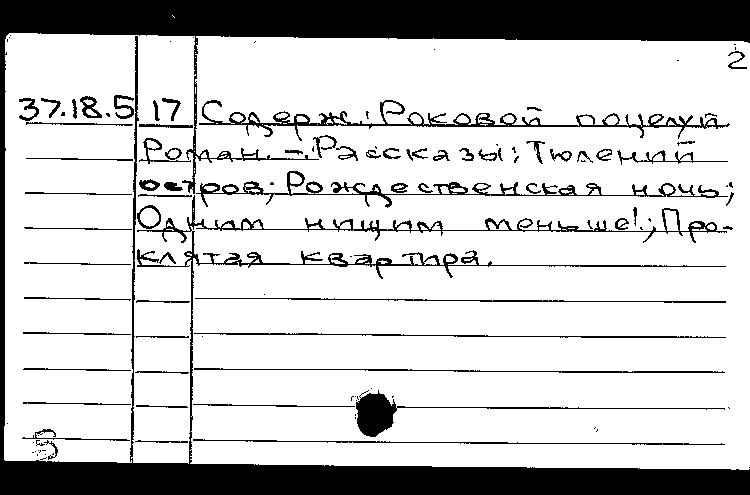 2
37.18.5 17 Содерж.: Роковой поцелуй
Роман. –. Рассказы: Тюлений
остров; Рождественская ночь;
Одним нищим меньше!; Про-
клятая квартира.
5